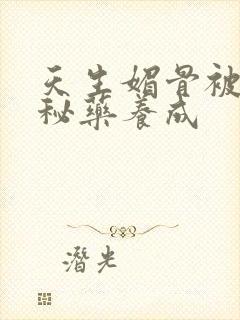 天生媚骨被
秘药养成
潛光